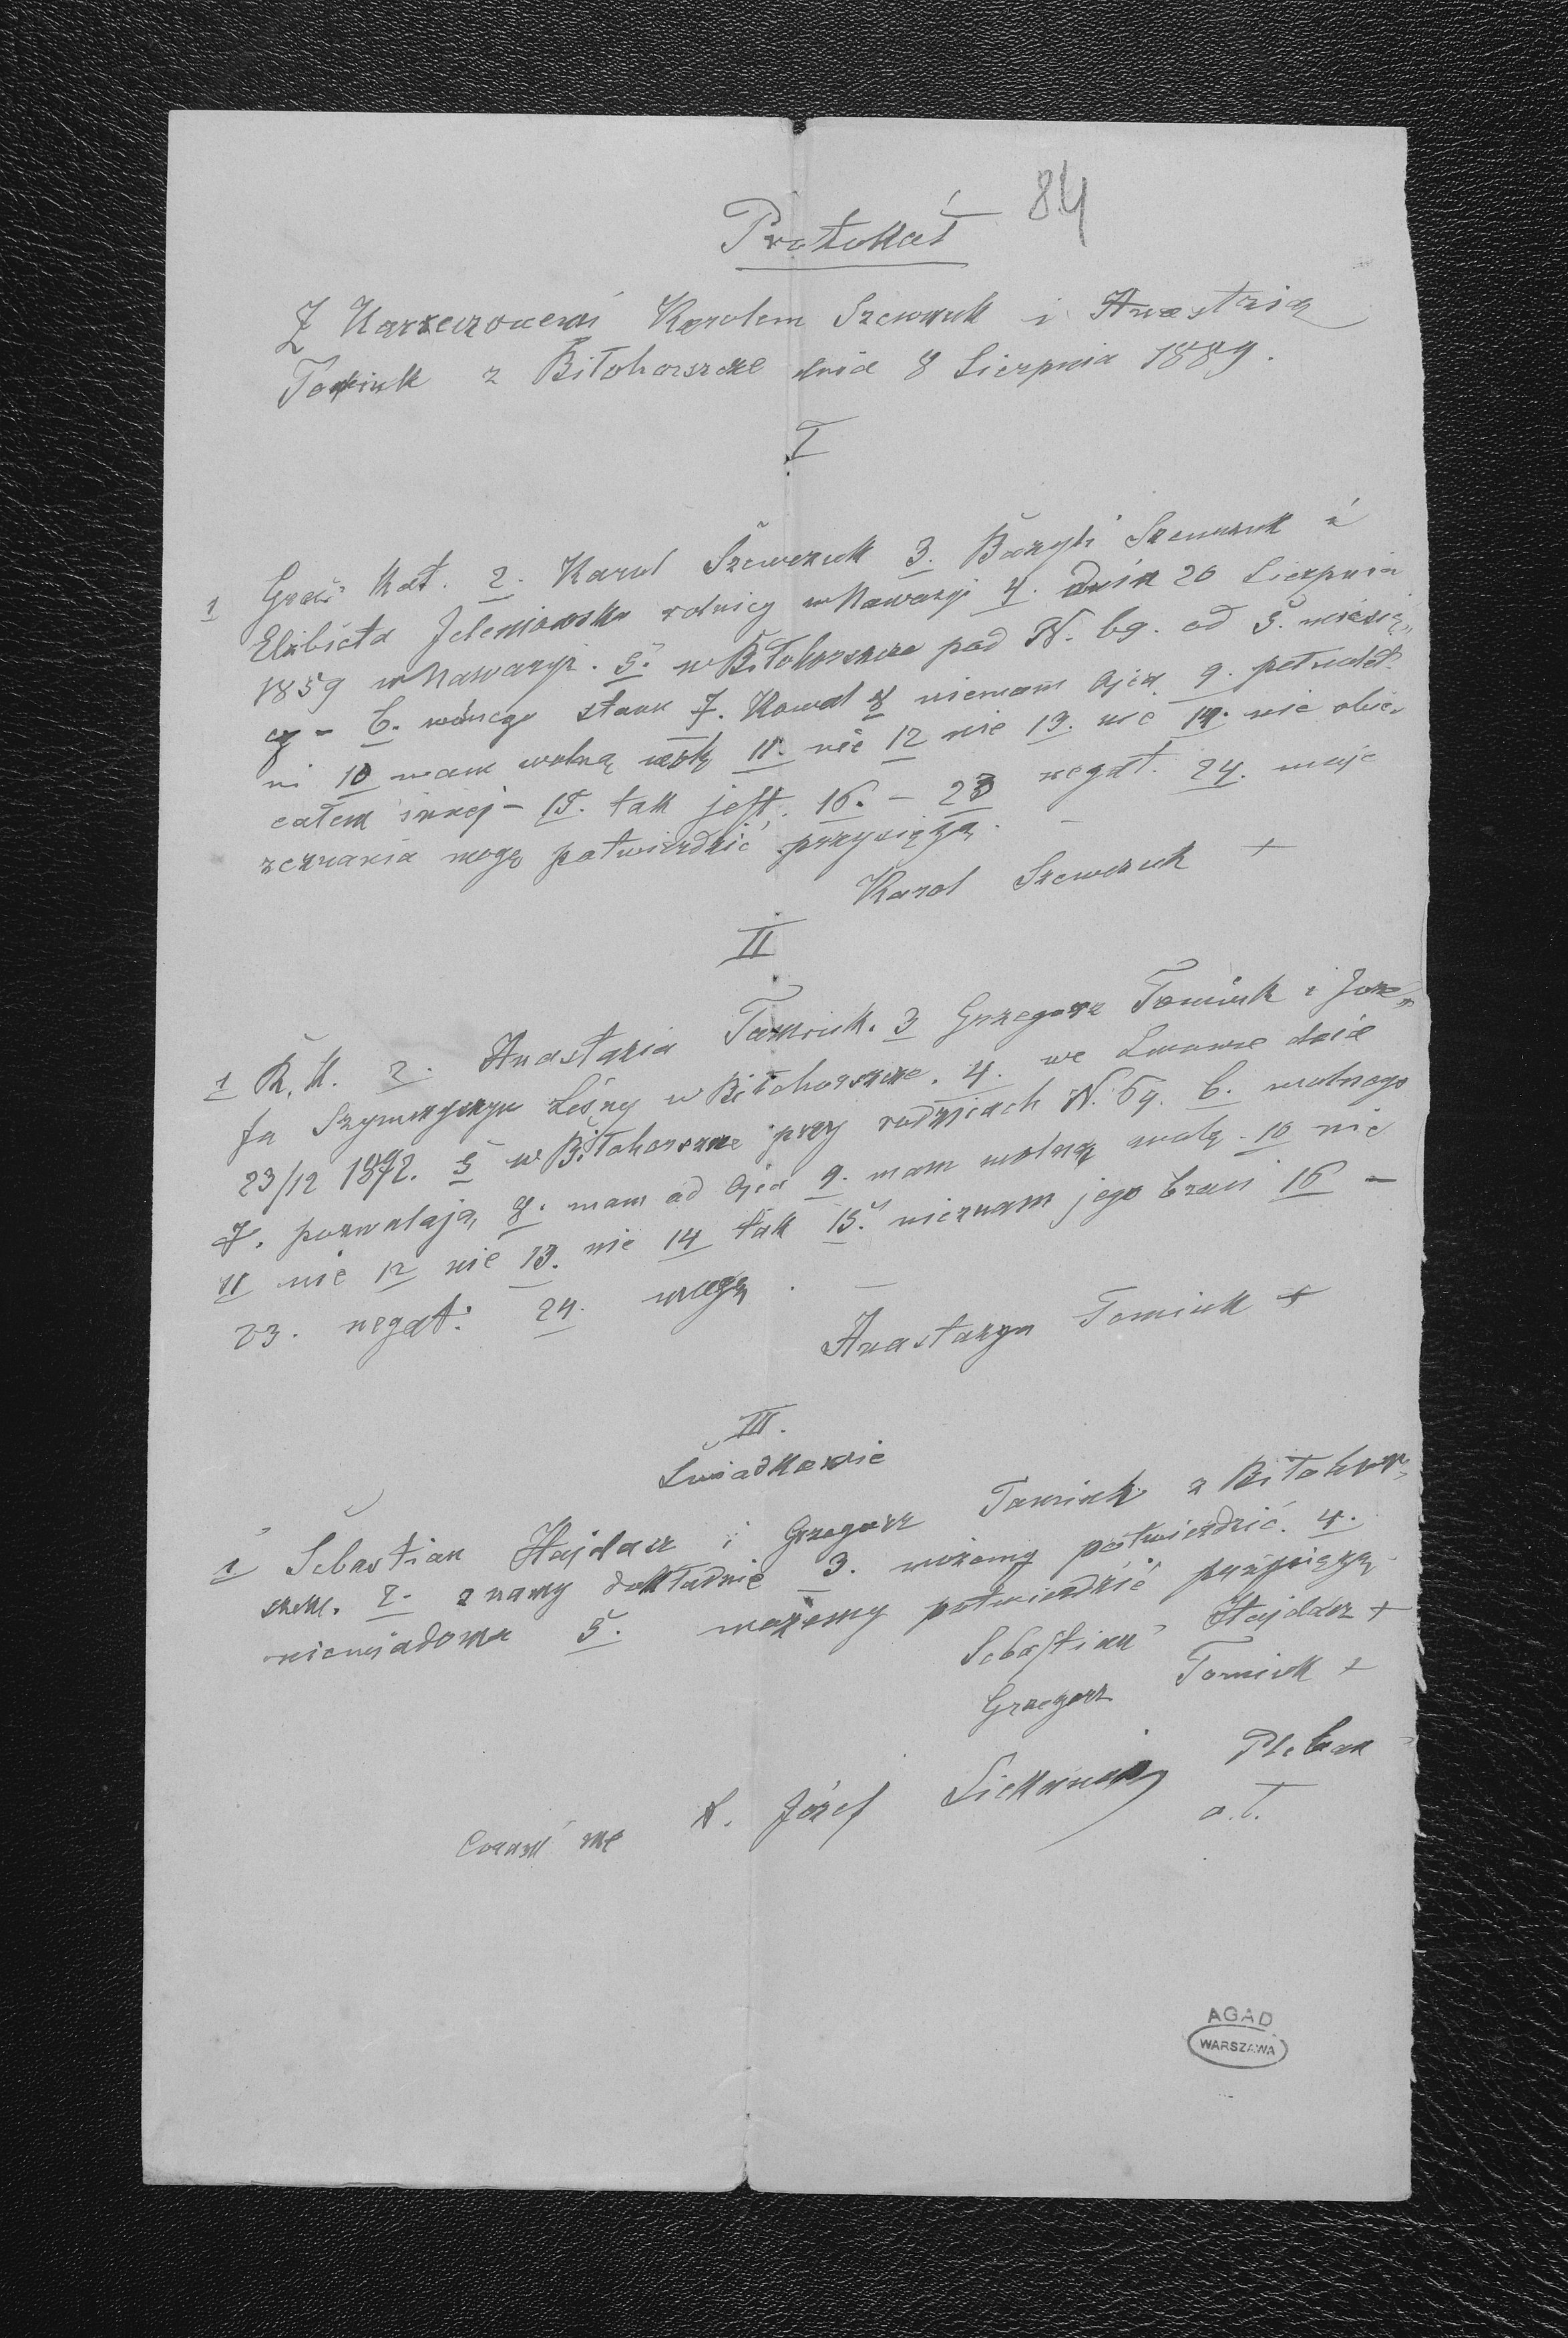 84
Protokół
Z Narzeczonemi Karolem Szewczuk i Anastazią
Tomiuk z Biłohorszcze dnia 8 Sierpnia 1889.
I
1 Grec. Kat. 2. Karol Szewczuk 3. Bazyli Szewczuk i
Elżbieta Jeleniowska rolnicy w Nawaryi 4. dnia 20 Sierpnia
1859 w Nawaryi. 5. w Biłohorszcze pod N. 69. od 5. miesię„
cy – 6. wolnego stanu 7. Kowal 8 niemam Ojca 9. pełnolet„
ni 10 mam wolną wolę 11. nie 12 nie 13. nie 14. nie obie„
całem innej – 15. tak jest. 16. – 23 negat. 24. moje
zeznania mogę potwierdzić przysięgą. –
Karol Szewczuk +
II
1 R. K. 2. Anastazia Tomiuk. 3 Grzegorz Tomiuk i Joze„
fa Leśny w Biłohorszcze. 4. we Lwowie dnia
23/12 1872. 5 w Biłohorszcze przy rodzicach N. 59. 6. wolnego
7. pozwalają 8. mam od Ojca 9. mam wolną wolę. 10 nie
11 nie 12 nie 13. nie 14 tak 15. nieznam jego braci 16 –
23. negat: 24. mogę. –
Anastazya Tomiuk +
III.
Świadkowie
1 Sebastian Hajdacz i Grzegorz Tomiuk z Biłohor„
szcze. 2. znamy dokładnie 3. możemy potwierdzić. 4.
niewiadoma 5. możemy potwierdzić przysięgą
Sebastian Hajdacz +
Grzegorz Tomiuk +
Coram me X. Józef Pleban
o. ł.
AGAD
WARSZAWA